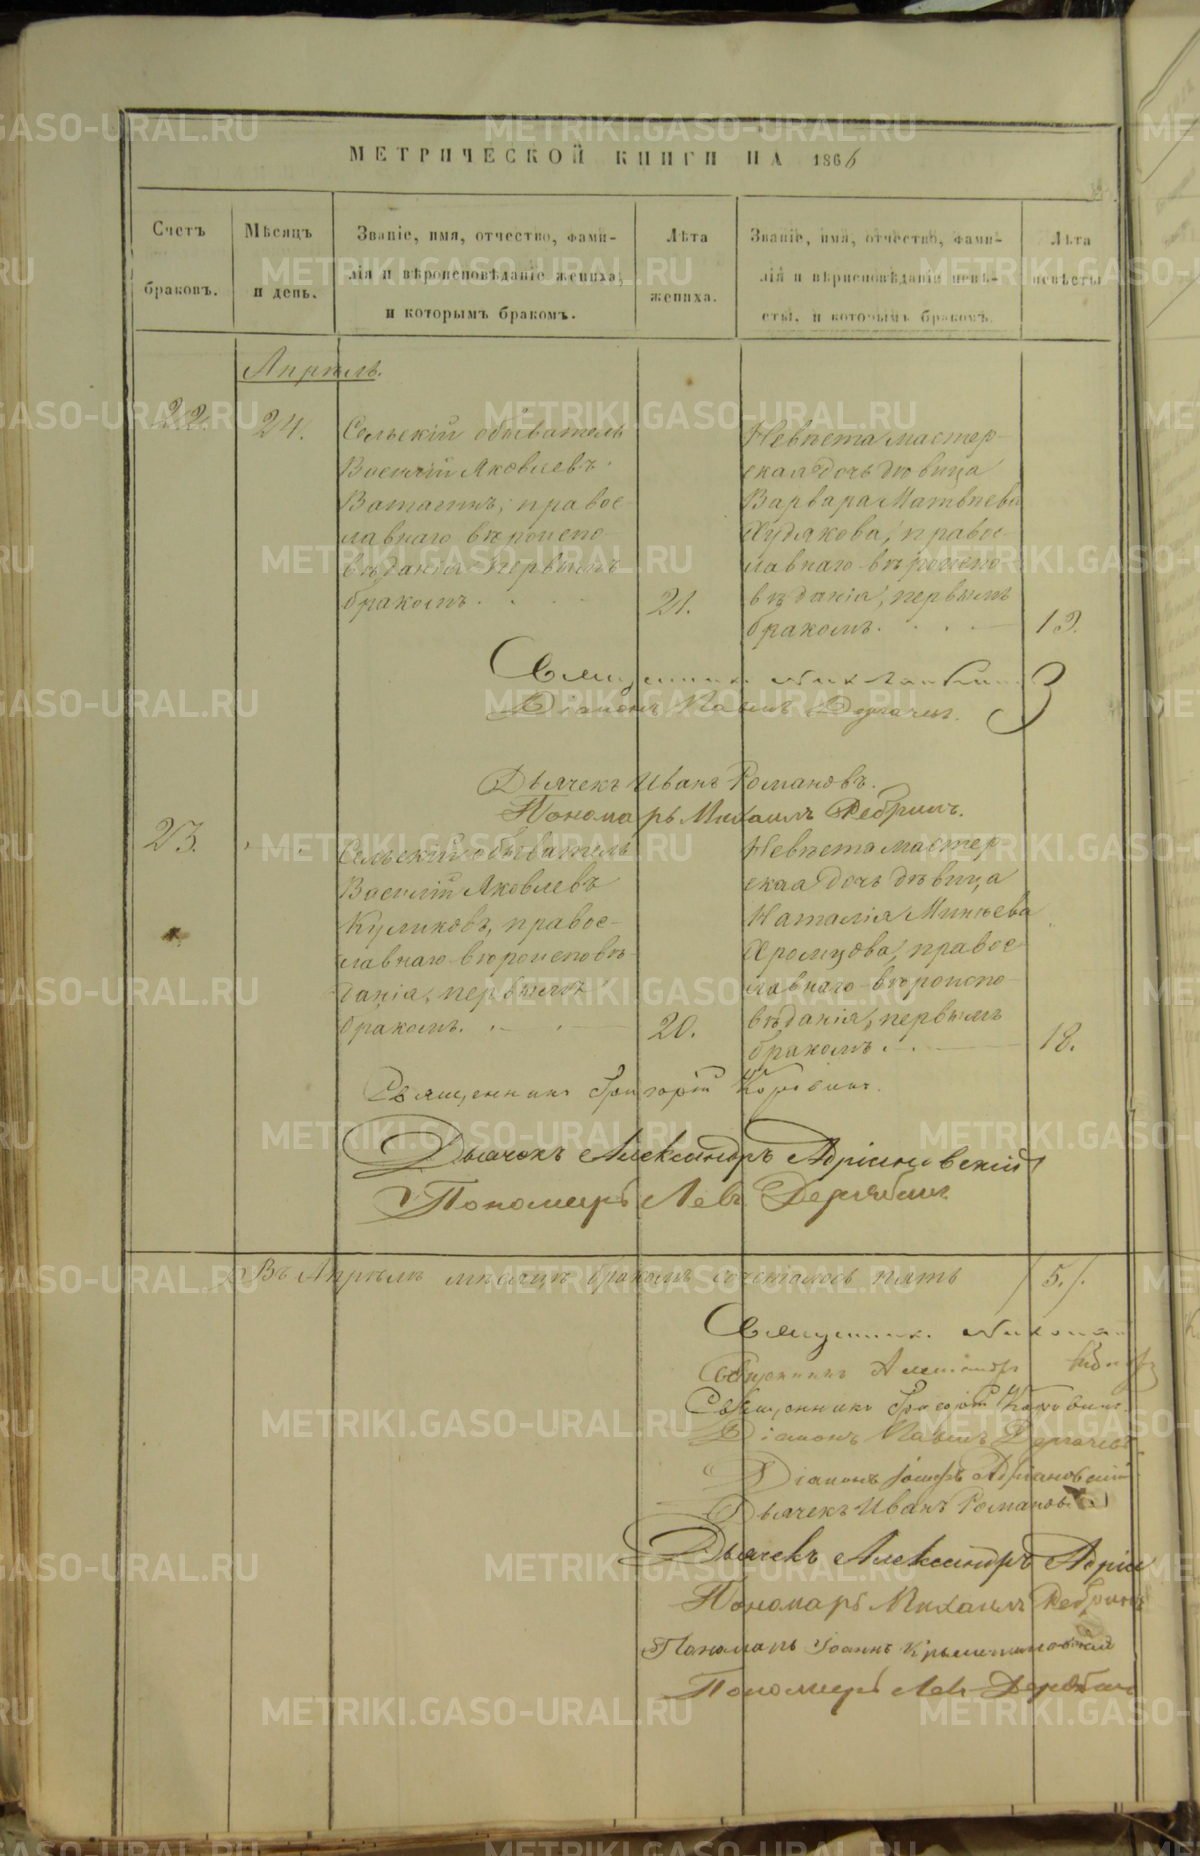 МЕТРИЧЕСКОЙ КНИГИ НА 1866
Счетъ браковъ.
Мѣсяцъ и день.
Званіе, имя, отчество, фами-
лія и вѣроисповѣданіе жениха,
и которымъ бракомъ.
Лѣта жениха.
Званіе, имя, отчество, фами-
лія и вѣрисповѣданіе невѣ-
сты, и которымъ бракомъ.
Лѣта невѣсты
Апрѣль.
22. 24.
Сельскій обыватель
Василій Яковлевъ
правос-
лавнаго вѣроиспо-
вѣданія первымъ
бракомъ. 21.
Невѣста мастер-
ская дочь дѣвица
Варвара Матвѣева
Худякова, правос-
лавнаго вѣроиспо-
вѣданія, первымъ
бракомъ. 19.
Священникъ
Діаконъ Павелъ Дергачевъ.
Дьячекъ Иванъ Романовъ.
Пономарь Михаилъ Ребринъ.
23.
Сельскій обыватель
Василій Яковлевъ
Куликовъ, правос-
лавнаго вѣроисповѣ-
данія, первымъ
бракомъ. 20.
Невѣста мастер-
ская дочь дѣвица
Наталія Минѣева
Хромцова, правос-
лавнаго вѣроиспо-
вѣданія, первымъ
бракомъ. 18.
Священникъ Григорій Коровинъ.
Дьячокъ Александръ Адріановскій
Пономарь Левъ Дерябинъ
Въ Апрѣлѣ мѣсяцѣ бракомъ сочеталось пять /5./
Священникъ
Священникъ Александръ
Священникъ Григорій Коровинъ.
Діаконъ Павелъ Дергачевъ
Діаконъ Іосифъ Адріановскій
Дьячекъ Иванъ Романовъ
Дьячекъ Александръ Адріан
Пономарь Михаилъ Ребринъ
Пономарь Іоаннъ
Пономарь Левъ Дерябинъ
METRIKI.GASO-URAL.RU